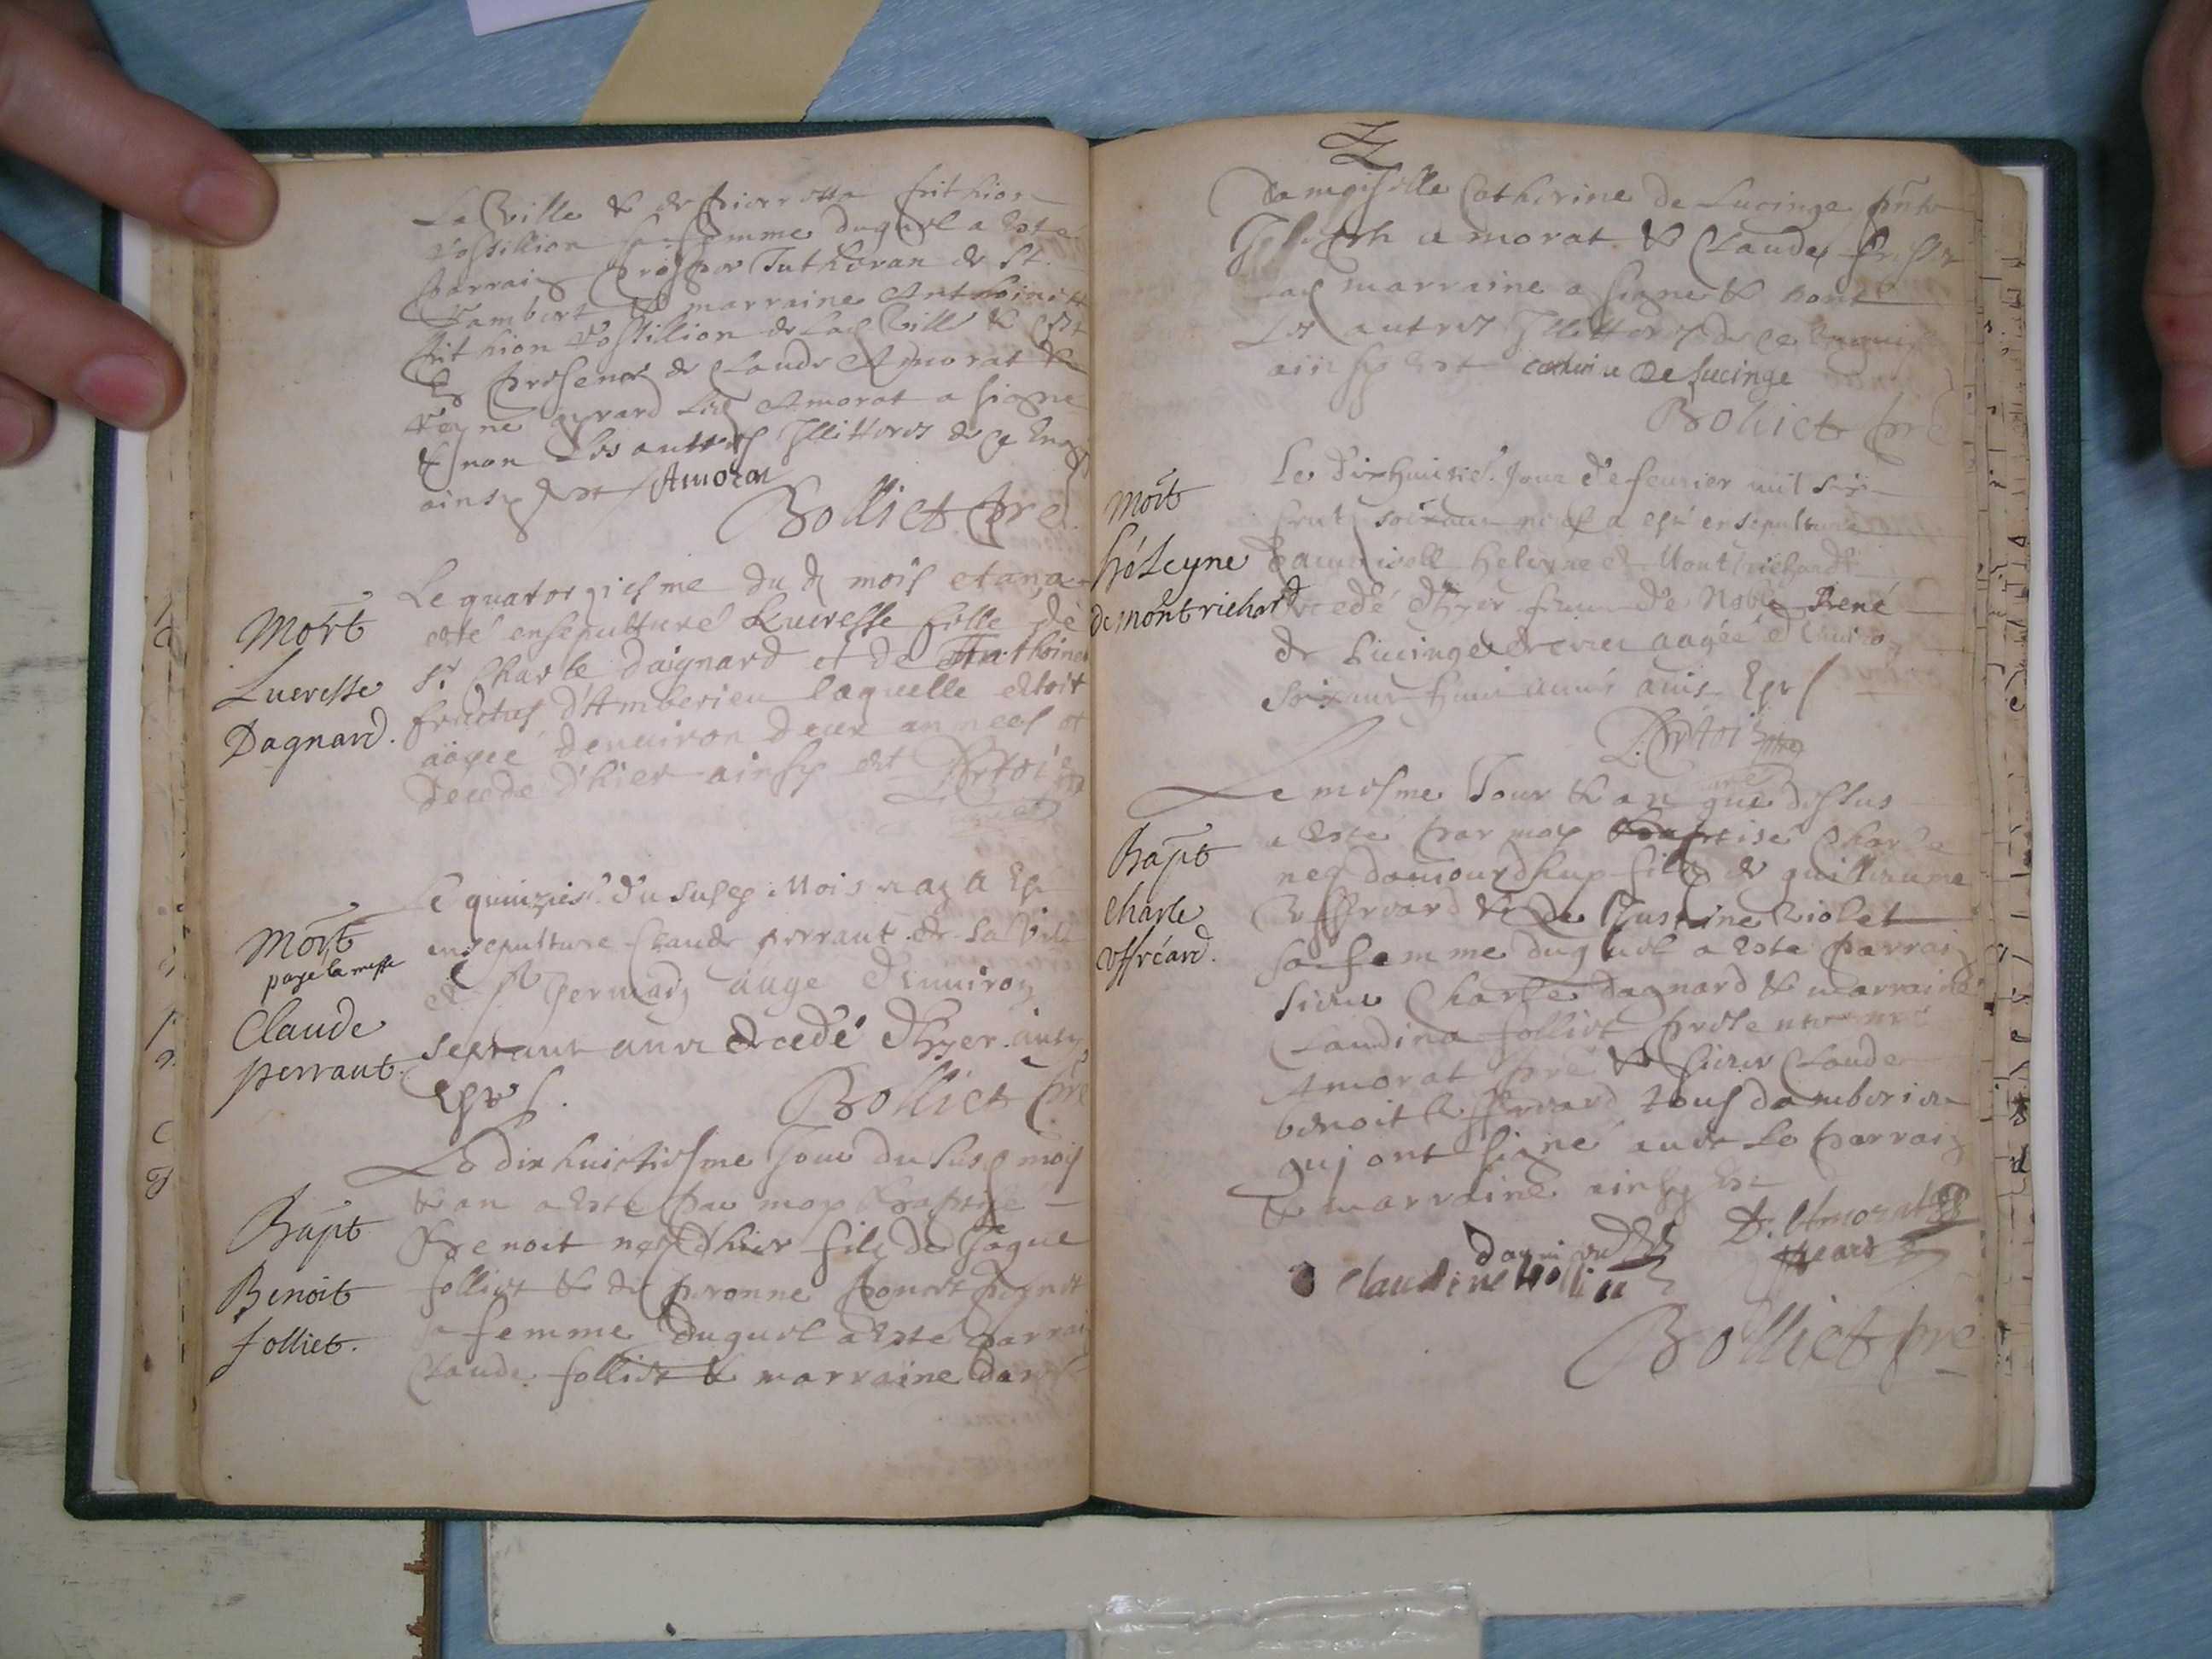 La Ville & de pierrotta frithion
Vostillion sa femme duquel a este
parrain prosper Tutheran de St.
Rambert & marraine Anthoinette
frithion Vostillion de lad Ville & est
En presence de Claude Amorat &
Reyne gyrard led Amorat a signe
& non Les auttres Illitterez de ce Enq
ainsy est Amorat
Bolliet pre
Mort
Lucresse
Dagnard.
Le quatorziesme du d mois et an a
esté ensepulturé Lucresse fille de
Sr Charle Daignard et de Anthoine
fructus d'Amberieu laquelle estoit
aagee denuiron deux annees et
decede d'hier ainsy est
Mort
paye la messe
Claude
perraut.
Le quinzies. du susd Mois & an a Esté
ensepulture Claude perraut de la Ville
de St Germain aage d'enuiron
septante ans decedé d'hyer ainsy
Est
Bolliet pre
Bapt
Benoit
folliet.
Le dix huictiesme Jour du susd mois
& an a este par moy Baptisé
Benoit nez d'hier fils de Jaque
folliet & de peronne
sa femme duquel a este parrain
Claude folliet & marraine dam
Damoiselle Catherine de Lucinge pnte
Joseph amorat & Claude
Lad marraine a signe & nont
Les autres Illitterez de ce Enquis
ainsy est caterine de Lucinge
Bolliet pre
Mort
héleyne
de montrichard
Le dixhuitie. Jour de feurier mil six
cent soixante neuf a esté ensepulturée
Damoiselle heleyne de Montrichard
decedé d'hyer femme de Noble René
de Lucinge aagée d'enuiron
soixante huit annés ainsy Est
Bapt
Charle
uffréard.
Le mesme Jour & an que dessus
a este par moy Baptisé Charle
nez daujourdhuy fils de guilliaume
Uffreard & de Justine Violet
sa femme duquel a este parrain
sieur Charle dagnard & marraine
Claudina folliet presente
Amorat pre & sieur Claude
benoit Uffreard tous damberieu
quj ont signé auec Le parrain
& marraine ainsy Est
D. Amorat
dagniard
Claudine folliet
Bolliet pre